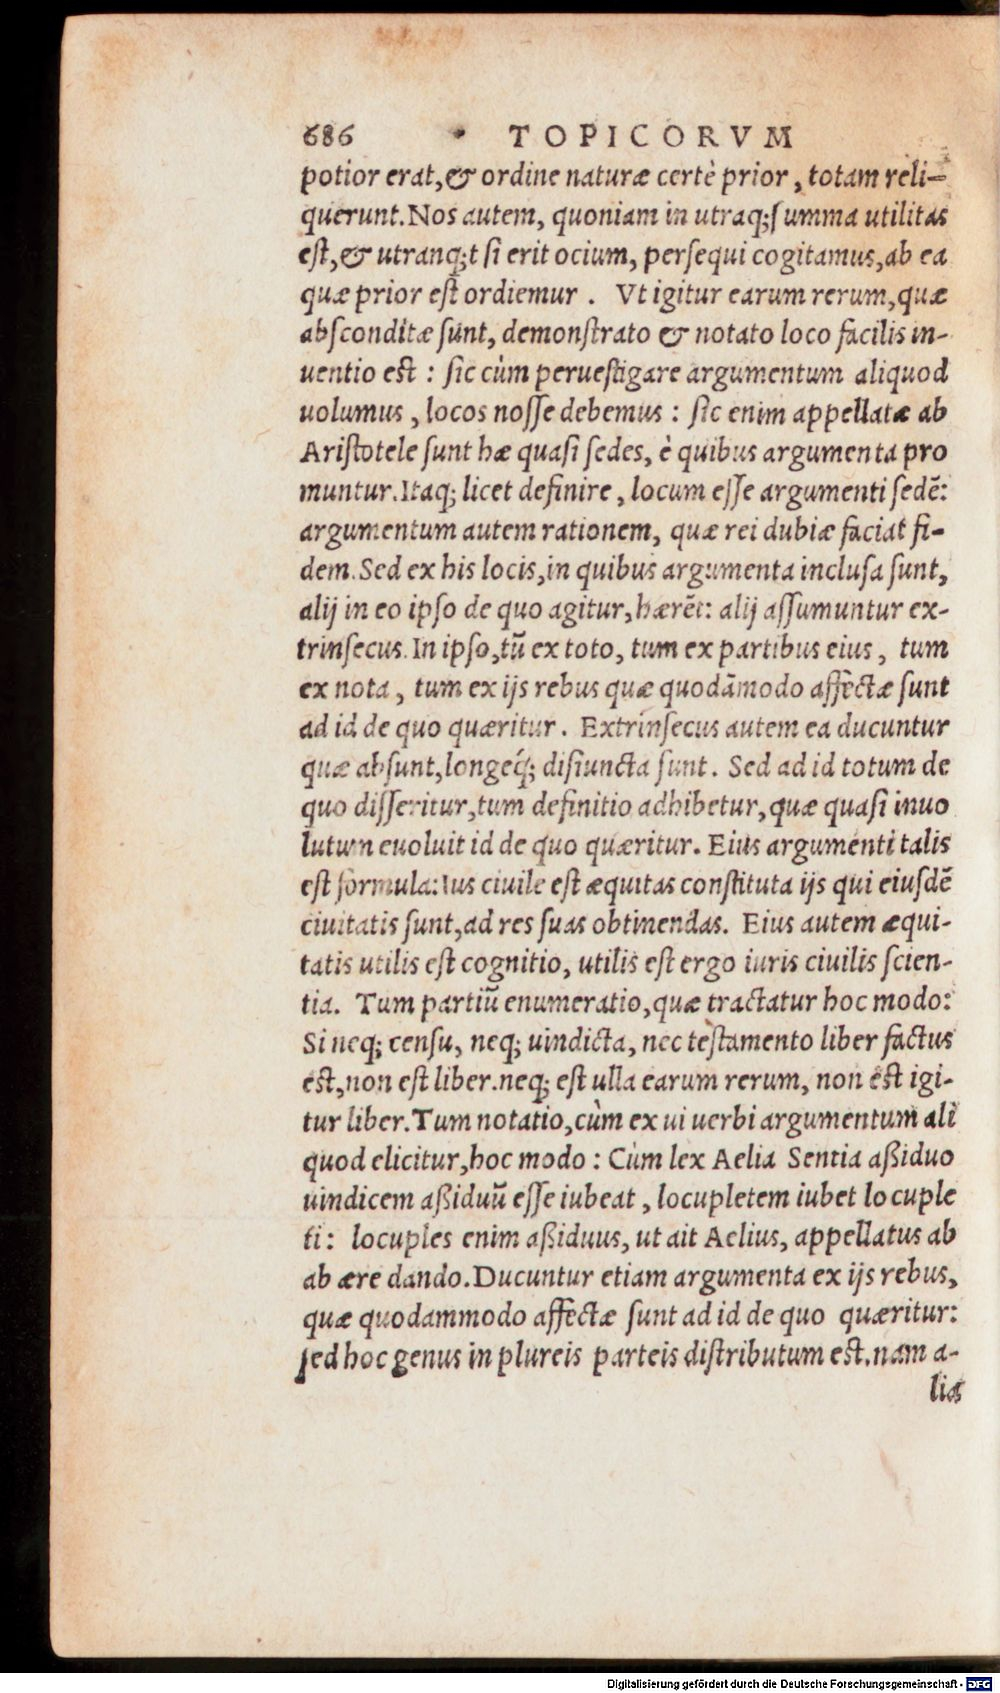 686 TOPICORVM
potior erat,& ordine naturæ certè prior, totam reli-
querunt. Nos autem, quoniam in utraq;ſumma utilitas
eſt,& utranq;t ſi erit ocium, perſequi cogitamus,ab ea
quæ prior eſt ordiemur. Vt igitur earum rerum,quæ
abſconditæ ſunt, demonſtrato & notato loco facilis in-
uentio eſt: ſic cùm perueſtigare argumentum aliquod
uolumus, locos noſſe debemus: ſic enim appellatæ ab
Ariſtotele ſunt hæ quaſi ſedes, è quibus argumenta pro
muntur. Itaq; licet definire, locum eſſe argumenti ſedē:
argumentum autem rationem, quæ rei dubiæ faciat fi-
dem. Sed ex his locis,in quibus argumenta incluſa ſunt,
alij in eo ipſo de quo agitur,hærēt: alij aſſumuntur ex-
trinſecus. In ipſo,tū ex toto, tum ex partibus eius, tum
ex nota, tum ex ijs rebus quæ quodāmodo affectæ ſunt
ad id de quo quæritur. Extrinſecus autem ea ducuntur
quæ abſunt,longeq́; diſiuncta ſunt. Sed ad id totum de
quo diſſeritur,tum definitio adhibetur,quæ quaſi inuo
lutum euoluit id de quo quæritur. Eius argumenti talis
eſt formula: Ius ciuile eſt æquitas conſtituta ijs qui eiuſdē
ciuitatis ſunt,ad res ſuas obtinendas. Eius autem æqui-
tatis utilis eſt cognitio, utilis eſt ergo iuris ciuilis ſcien-
tia. Tum partiū enumeratio,quæ tractatur hoc modo:
Si neq; cenſu, neq; uindicta, nec teſtamento liber factus
eſt,non eſt liber.neq; eſt ulla earum rerum, non eſt igi-
tur liber. Tum notatio,cùm ex ui uerbi argumentum ali
quod elicitur,hoc modo: Cùm lex Aelia Sentia aßiduo
uindicem aßiduū eſſe iubeat, locupletem iubet locuple
ti: locuples enim aßiduus, ut ait Aelius, appellatus ab
ab ære dando. Ducuntur etiam argumenta ex ijs rebus,
quæ quodammodo affectæ ſunt ad id de quo quæritur:
ſed hoc genus in plureis parteis diſtributum eſt.nam a-
liæ
Digitalisierung gefördert durch die Deutsche Forschungsgemeinschaft - DFG